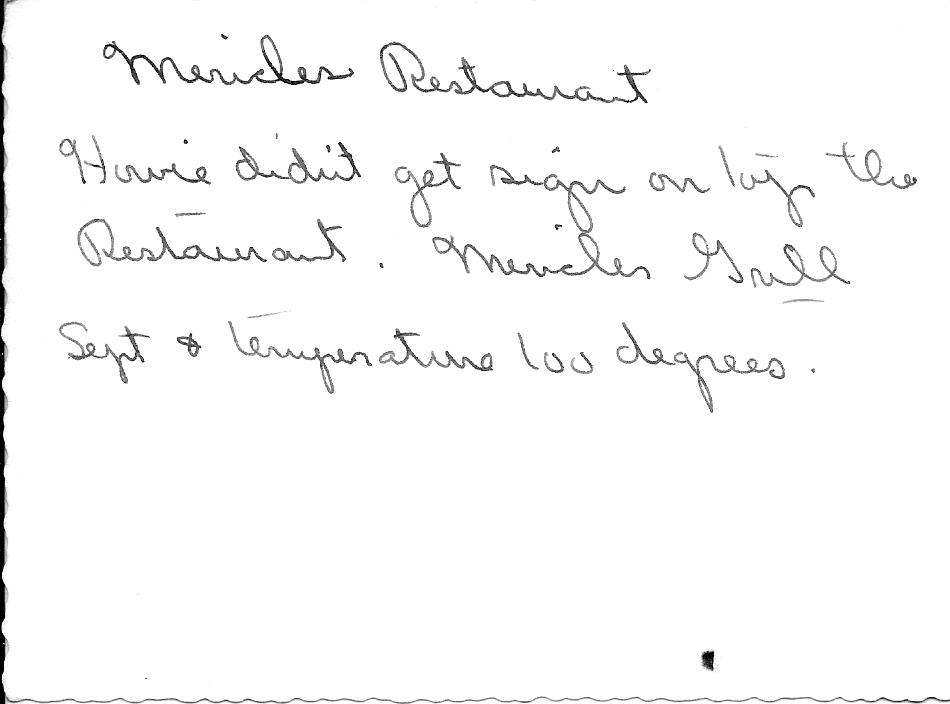 Mericles Restaurant
Howie didn't get sign on top the
Restaurant. Mericles Grill
Sept & temperature 100 degrees.